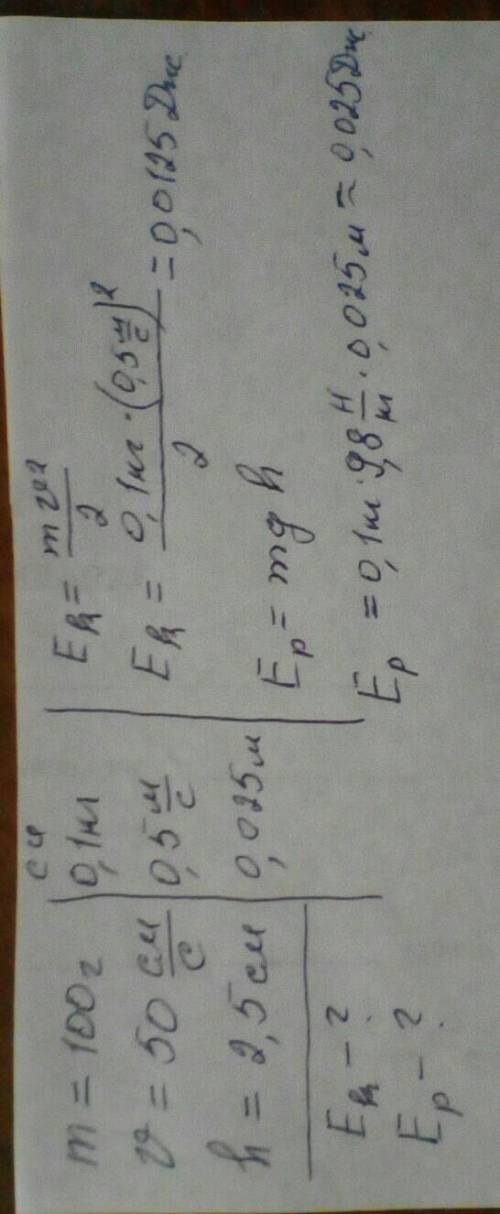 m = 100г
v = 50 см/с
h = 2,5 см
Eк – ?
Eр – ?
си
0,1кг
0,5 м/с
0,025м
Eк = mv²/2
Eк = 0,1кг · (0,5 м/с)²/2 = 0,0125 Дж
Eр = mgh
Eр = 0,1кг · 9,8 Н/кг · 0,025м = 0,025Дж